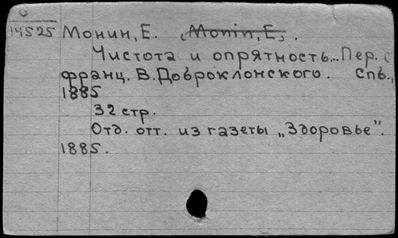 14525 Монин, Е. (Monin, E.).
Чистота и опрятность... Пер. с
франц. В. Доброклонского. Спб.,
1885
32 стр.
Отд. отт. из газеты „Здоровье".
1885.